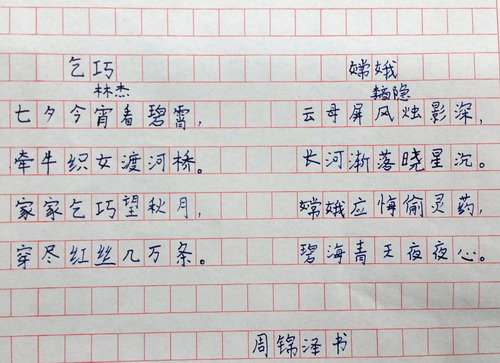 乞巧
林杰
七夕今宵看碧霄,
牵牛织女渡河桥。
家家乞巧望秋月,
穿尽红丝几万条。
嫦娥
隐
云母屏风烛影深,
长河渐落晓星沉。
嫦娥应悔偷灵药,
碧海青天夜夜心。
周锦泽书